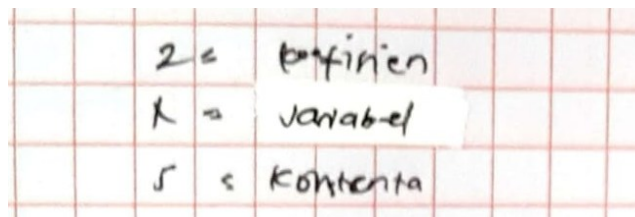 2 = koefinien
x = variabel
5 = kontenta